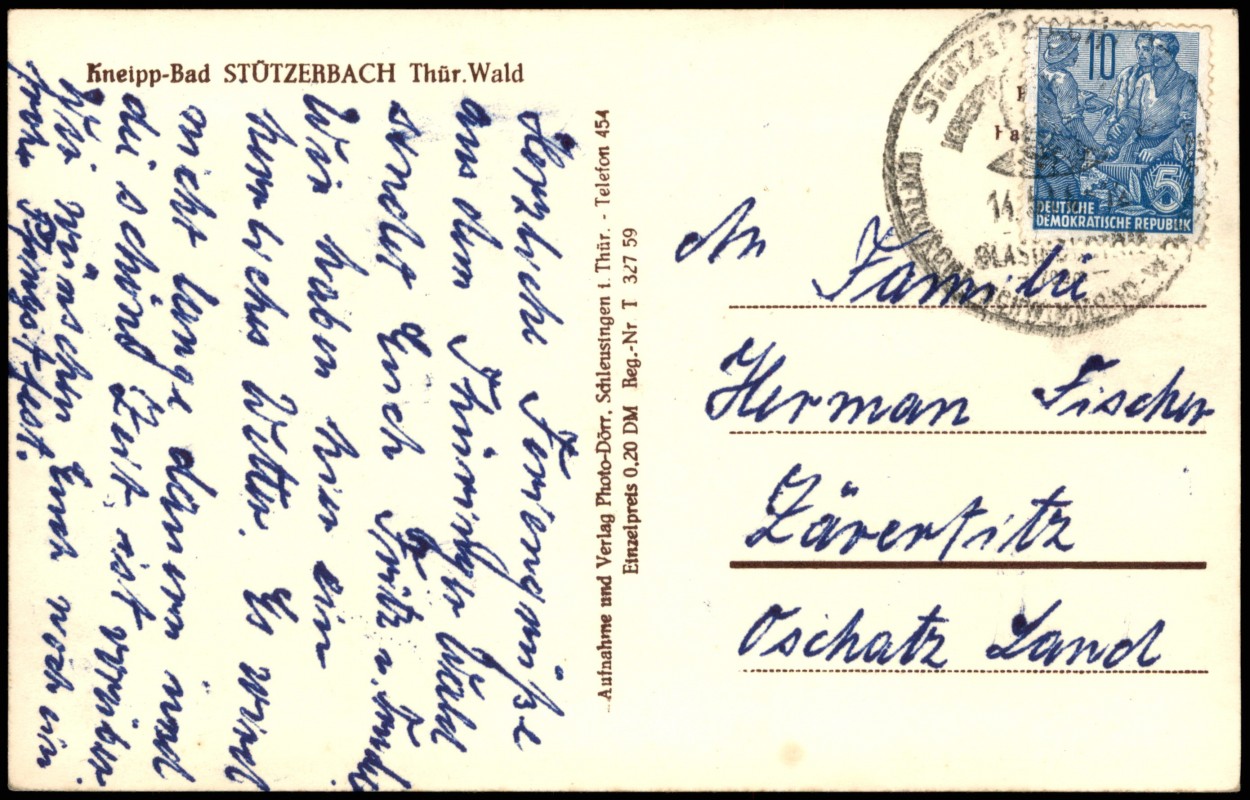 Kneipp-Bad STÜTZERBACH Thür. Wald
Herzliche Feriengrüße
aus dem Thüringer Wald
sendet Euch Fritz u.
Wir haben hier ein
herrliches Wetter. Es wird
nicht lange dauern und
die schöne Zeit ist vorüber.
Wir wünschen Euch noch ein
frohes Pfingstfest.
Aufnahme und Verlag Photo-Dörr, Schleusingen i. Thür. - Telefon 454
Einzelpreis 0,20 DM Reg.-Nr T 327 59
STÜTZERBACH
14.
10
5
DEUTSCHE
DEMOKRATISCHE REPUBLIK
An Familie
Herman Fischer
Zävertitz
Oschatz Land